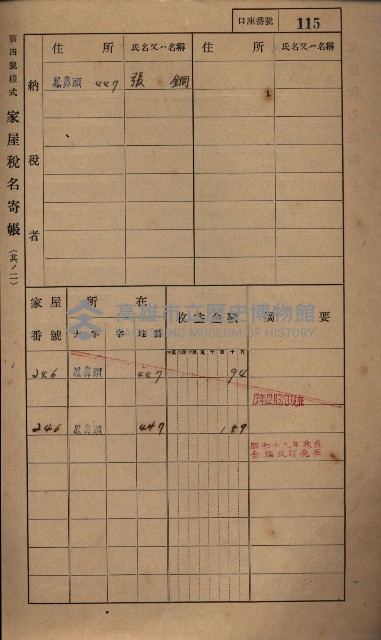 口座番號 115
第四號樣式 家屋稅名寄帳 (其ノ二)
納稅者
住所 氏名又ハ名稱 住所 氏名又ハ名稱
鳳鼻頭 447 張 銅
家屋番號 所在 收益金額 摘要
大字 字 地番
246 鳳鼻頭 447 94
246 鳳鼻頭 447 159
昭和十九年收益
金額改訂現在
高雄市立歷史博物館
KAOHSIUNG MUSEUM OF HISTORY